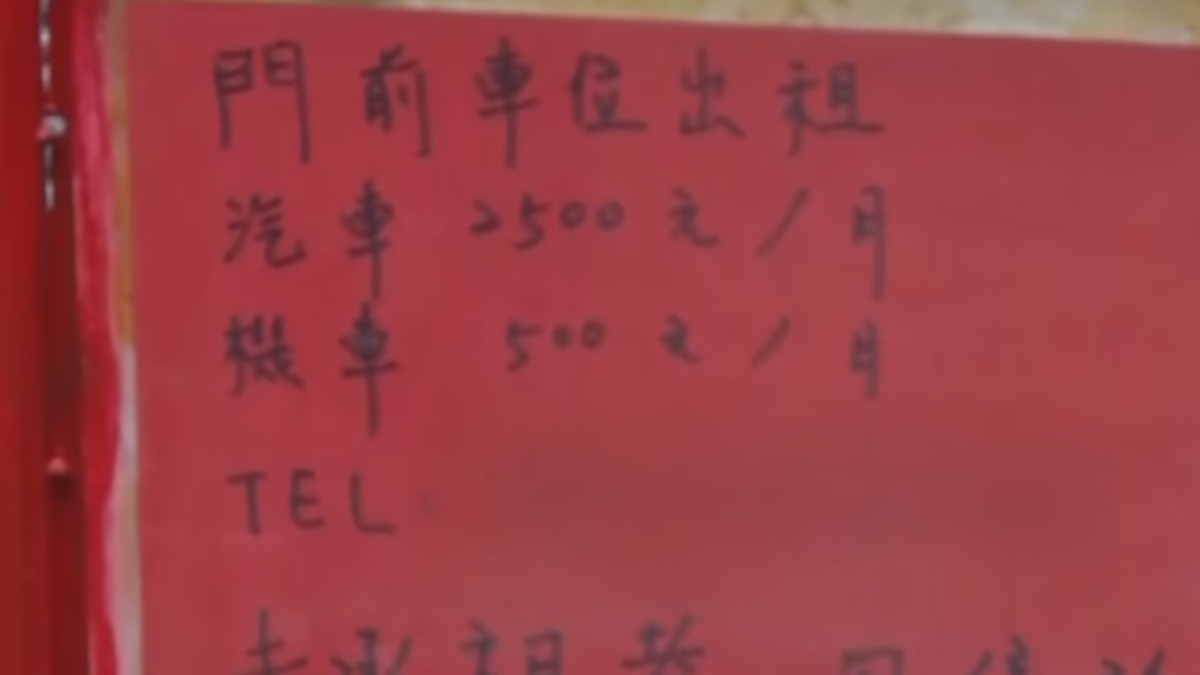 門前車位出租
汽車 2500元/月
機車 500元/月
TEL
未承租者